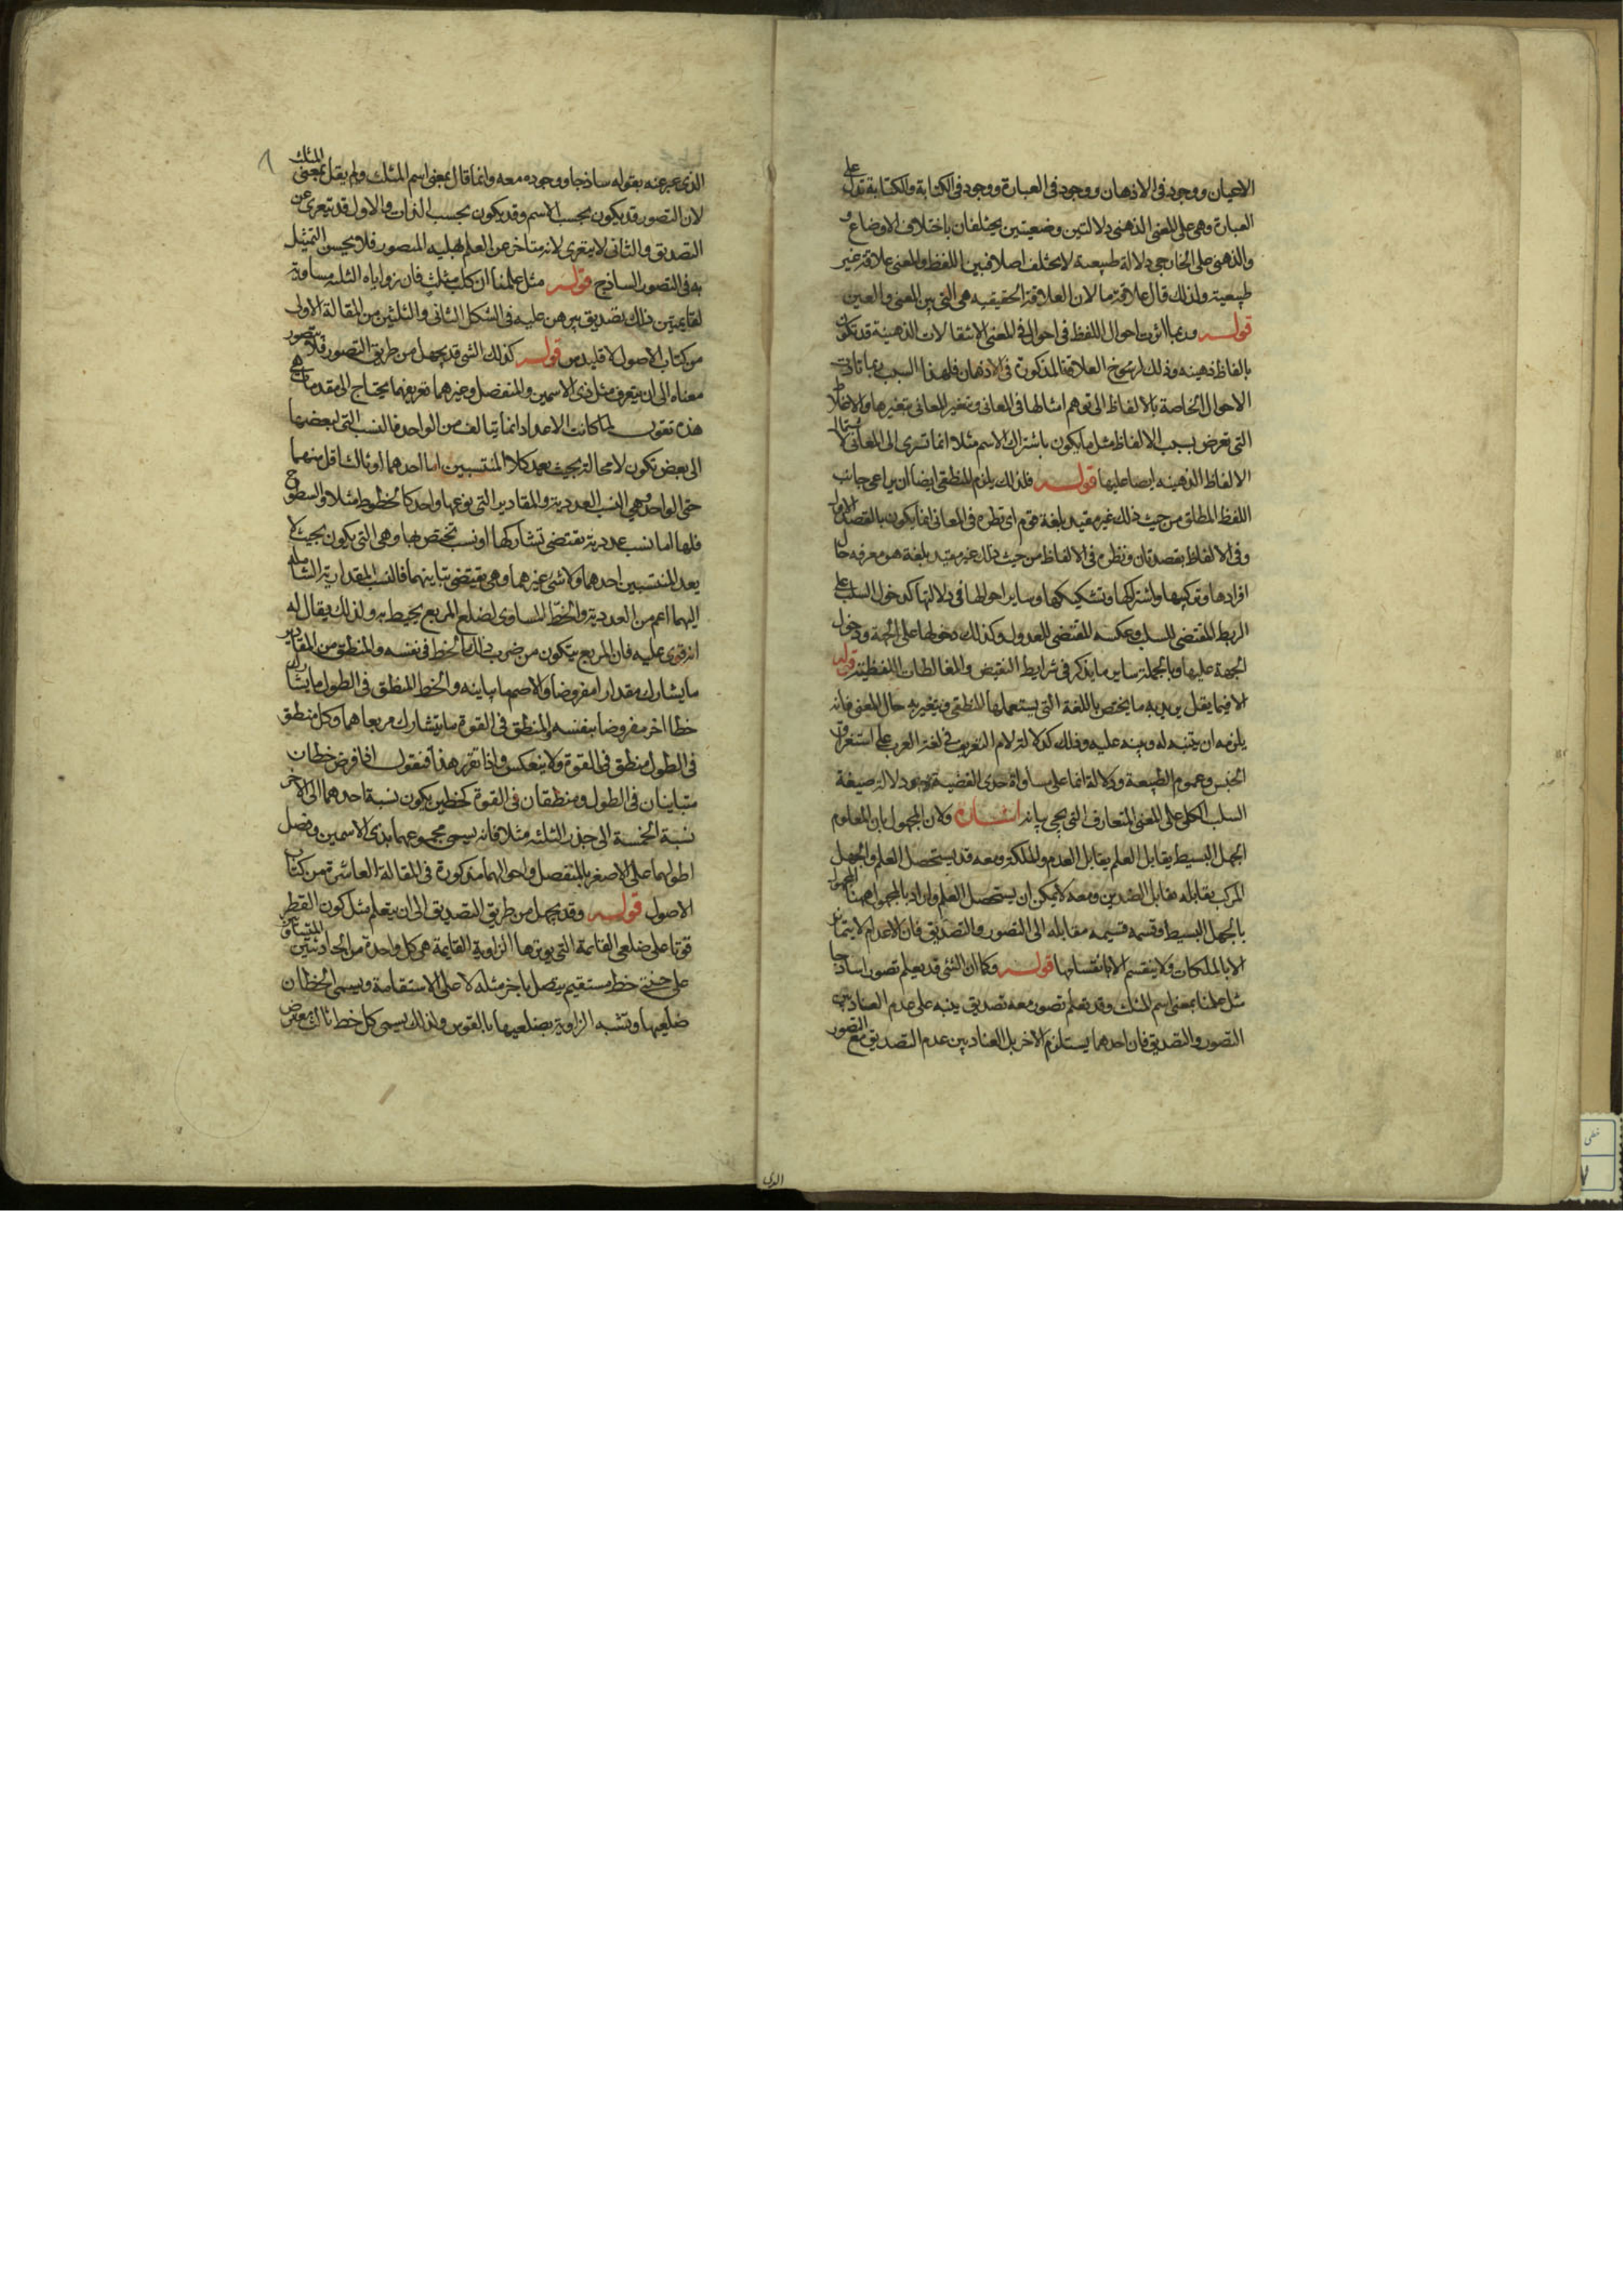 الاعيان ووجود في الاذهان ووجود في العبارة ووجود في الكتابة والكتابة تدل على
العبارة وهى على المعنى الذهنى دلالتين وضعيتين يختلفان باختلاف الاوضاع و
والذهنى على الخارجى دلالة طبيعية لا يختلف اصلا فبين اللفظ والمعنى علاقة غير
طبيعية ولذلك قال علاقة ما لان العلاقة الحقيقيه هى التى بين المعنى والعين
قوله وربما اثرت احوال اللفظ في احوال في المعنى الانتقالات الذهنية قد تكون
بالفاظ ذهنيه وذلك لرسوخ العلاقة المذكورة في الاذهان فلهذا السبب ربما تادت
الاحوال الخاصة بالالفاظ الى توهم امثالها في المعانى وتغير المعانى بتغيرها والاغلاط
التى تعرض بسبب الالفاظ مثل ما يكون باشتراك الاسم مثلا انما تسرى الى المعانى لاشتمال
الالفاظ الذهنيه ايضا عليها قوله فلذلك يلزم المنطقى ايضا ان يراعى جانب
اللفظ المطلق من حيث ذلك غير مقيد بلغة قوم اى نظره في المعانى انما يكون بالقصد الاول
وفي الالفاظ بقصد ثان ونظره في الالفاظ من حيث ذلك غير مقيد بلغة هو معرفه حال
افرادها وتركيبها واشتراكها وتشكيكها وساير احوالها في دلالتها كدخول السلب على
الربط المقتضى للسلب وعكسه المقتضى للعدول وكذلك دخولها على الجهة ودخول
الجهة عليها وبالجملة ساير ما يذكر في شرايط النقيض والمغالطات اللفظية قوله
الا فيما يقل يريد به ما يختص باللغة التى يستعملها المنطقى ويتغير به حال المعنى فانه
يلزمه ان يتنبه له وينبه عليه وذلك كدلالة لام التعريف في لغة العرب على استغراق
الجنس وعموم الطبيعة ودلالة انما على مساواة حدى القضية ودلالة صيغة
السلب الكلى على المعنى المتعارف الذى يجى بيانه اشارة ولان المجهول بازاء المعلوم
الجهل البسيط يقابل العلم تقابل العدم والملكة ومعه قد يستحصل العلم والجهل
المركب يقابله تقابل الضدين ومعه لا يمكن ان يستحصل العلم واراد بالمجهول ههنا المجهول
بالجهل البسيط وقسمه قسيمه مقابله الى التصور والتصديق فان الاعدام لا يتمايز
الا بالملكات ولا ينقسم الا بانقسامها قوله وكما ان الشى قد يعلم تصورا ساذجا
مثل علمنا بمعنى اسم المثلث وقد يعلم تصور معه تصديق ينبه على عدم العناد بين
التصور والتصديق فان احدهما يستلزم الاخر بل العناد بين عدم التصديق مع التصور
الذى
الذى عبر عنه بقوله ساذجا ووجوده معه وانما قال بمعنى اسم المثلث ولم يقل بمعنى المثلث
لان التصور قد يكون بحسب الاسم وقد يكون بحسب الذات والاول قد يتعرى عن
التصديق والثانى لا يتعرى لانه متاخر عن العلم بهليه المتصور فلا يحسن التمثيل
به في التصور الساذج قوله مثل علمنا ان كل مثلث فان زواياه الثلثه مساوية
لقايمتين ذلك تصديق يبرهن عليه في الشكل الثانى والثلثين من المقالة الاولى
من كتاب الاصول لاقليدس قوله كذلك الشى قد يجهل من طريق التصور فلا يتصور
معناه الى ان يتعرف مثل ذى الاسمين والمنفصل وغيرهما تعريفهما يحتاج الى مقدمات هى
هذه نقول لما كانت الاعداد انما يتالف من الواحد فالنسب التى لبعضها
الى بعض تكون لا محالة بحيث يعد كلا المنتسبين اما احدهما او ثالث اقل منهما
حتى الواحد وهى النسب العددية والمقادير التى نوعها واحد كالخطوط مثلا والسطوح
فلها اما نسب عددية تقتضى تشاركها او نسب تختص بها وهى التى يكون بحيث لا
يعد المنتسبين احدهما ولا شى غيرهما وهى يقتضى تباينهما فالنسب المقدارية الشاملة
اليهما اعم من العددية والخط المساوى لضلع المربع يحيط به ولذلك يقال له
انه قوى عليه فان المربع يتكون من ضرب ذلك الخط في نفسه والمنطق من المقادير
ما يشارك مقدارا مفروضا والاصم ما يباينه والخط المنطق في الطول ما يشارك
خطا اخر مفروضا بنفسه والمنطق في القوة ما يتشارك مربعاهما وكل منطق
في الطول منطق في القوة ولا ينعكس واذا تقرر هذا فنقول اذا فرض خطان
متباينان في الطول ومنطقان في القوة كخطين يكون نسبة احدهما الى الاخر
نسبة الخمسة الى جذر الثلثه مثلا فانه يسمى مجموعهما بذى الاسمين وفضل
اطولهما على الاصغر بالمنفصل واحوالهما مذكورة في المقالة العاشرة من كتاب
الاصول قوله وقد يجهل من طريق التصديق الى ان يتعلم مثل كون القطر
قويا على ضلعى القائمة التى يوترها الزاوية القايمة هى كل واحدة من الحادثتين المتساويتين
على جنبتى خط مستقيم يتصل باخر مثله لا على الاستقامة ويسمى الخطان
ضلعيها وتشبه الزاوية بضلعيها بالقوس ولذلك يسمى كل خط ثالث يعرض